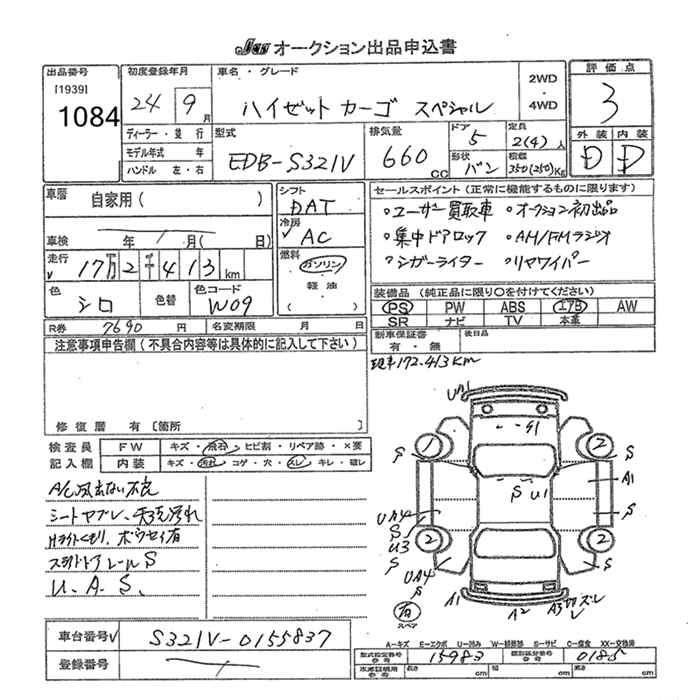 Jas オークション出品申込書
出品番号 初度登録年月 車名・グレード 評価点
[1939] 1084
24 9月 ハイゼット カーゴ スペシャル 2WD・4WD 3
外装 内装
D D
ディーラー・並行
モデル年式 年
ハンドル 左・右
型式 EDB-S321V
排気量 660 CC
ドア 5 形状 バン
定員 2(4)人 積載 350(250)Kg
車歴 自家用( )
車検 年 月( 日)
走行 √ 17万2千413km
色 シロ 色替 色コード W09
シフト DAT
冷房 √ AC
燃料 ガソリン
軽油
( )
R券 7690円 名変期限 月 日
セールスポイント(正常に機能するものに限ります)
・ユーザー買取車 ・オークション初出品
・集中ドアロック ・AM/FMラジオ
・シガーライター ・リヤワイパー
装備品(純正品に限り○を付けてください)
PS PW ABS エアB AW
SR ナビ TV 本革
新車保証書 後日品
有・無
現車172.413Km
注意事項申告欄(不具合内容等は具体的に記入して下さい)
修復歴 有[箇所 ]
検査員 FW キズ・飛石・ヒビ割・リペア跡・×要
記入欄 内装 キズ・汚れ・コゲ・穴・スレ・キレ・破レ
A/C
シートヤブレ、
スライドドアレールS
U. A. S.
UA1
S1
1 2
S S
A1
S U1
UA4 S
S
U3
2 2
S S
UA4
A1 A2 A3
有
スペア
車台番号√ S321V-0155837
登録番号
A-キズ E-エクボ U-凹み W-補修跡 S-サビ C-腐食 XX-交換済
型式指定番号 15983 類別区分番号 0185
参考 長さ cm 幅 cm 高さ cm